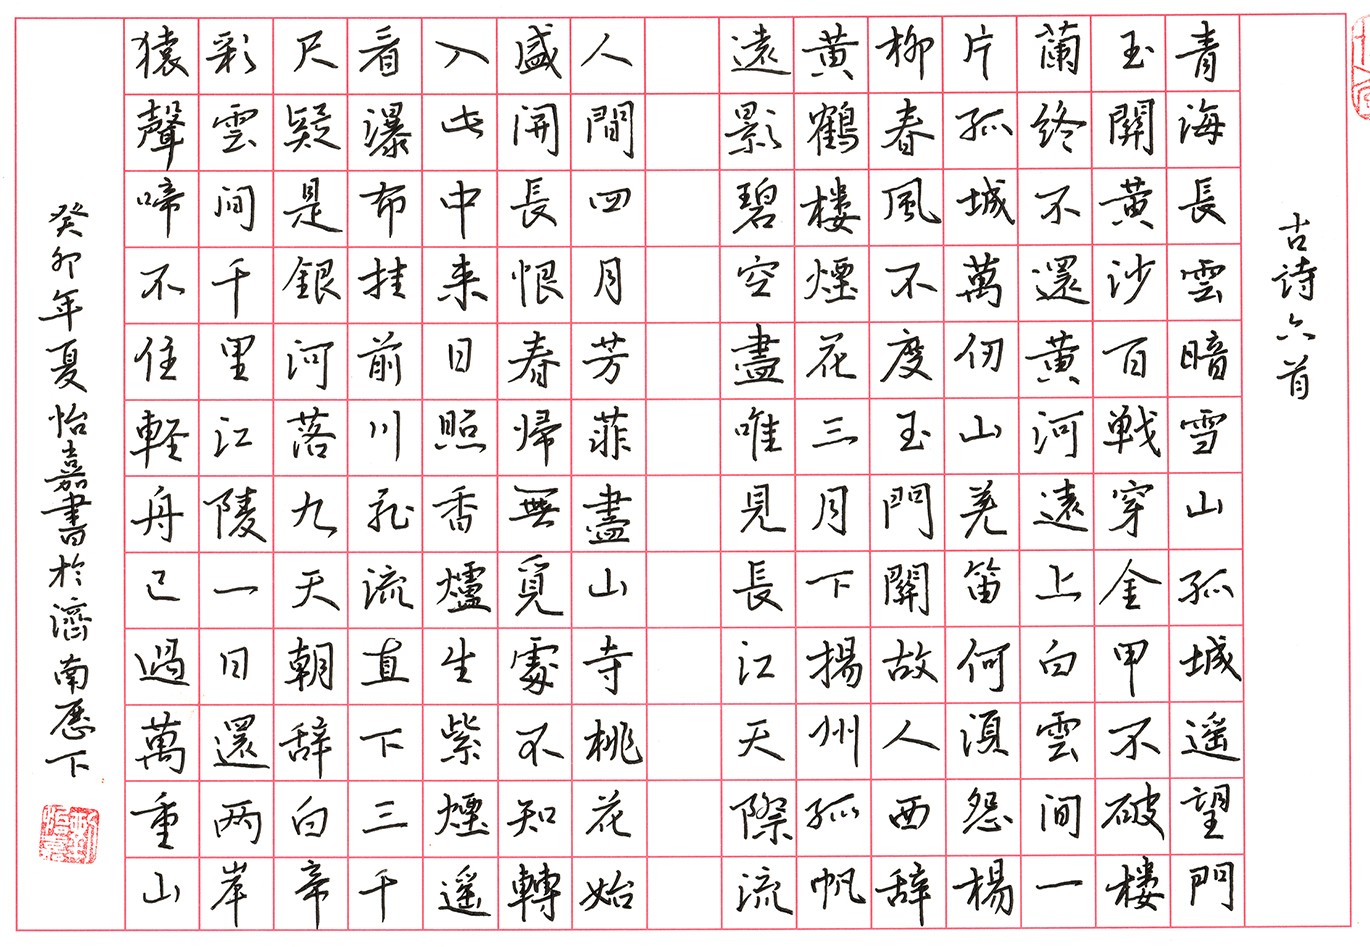 古詩六首
青海長雲暗雪山孤城遥望門
玉關黄沙百戦穿金甲不破楼
蘭終不還黄河遠上白雲间一
片孤城萬仞山羌笛何須怨楊
柳春風不度玉門關故人西辞
黄鶴楼煙花三月下揚州孤帆
遠影碧空盡唯見長江天際流
人間四月芳菲盡山寺桃花始
盛開長恨春帰無覓處不知轉
入此中来日照香爐生紫煙遥
看瀑布挂前川飛流直下三千
尺疑是銀河落九天朝辞白帝
彩雲间千里江陵一日還两岸
猿聲啼不住軽舟已過萬重山
癸卯年夏怡嘉書於濟南歷下